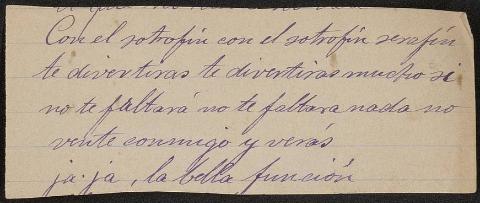 Con el sotrofin con el sotrofin serafin
te divertiras te divertiras mucho si
no te faltará no te faltara nada no
vente conmigo y verás
ja. ja, la bella función